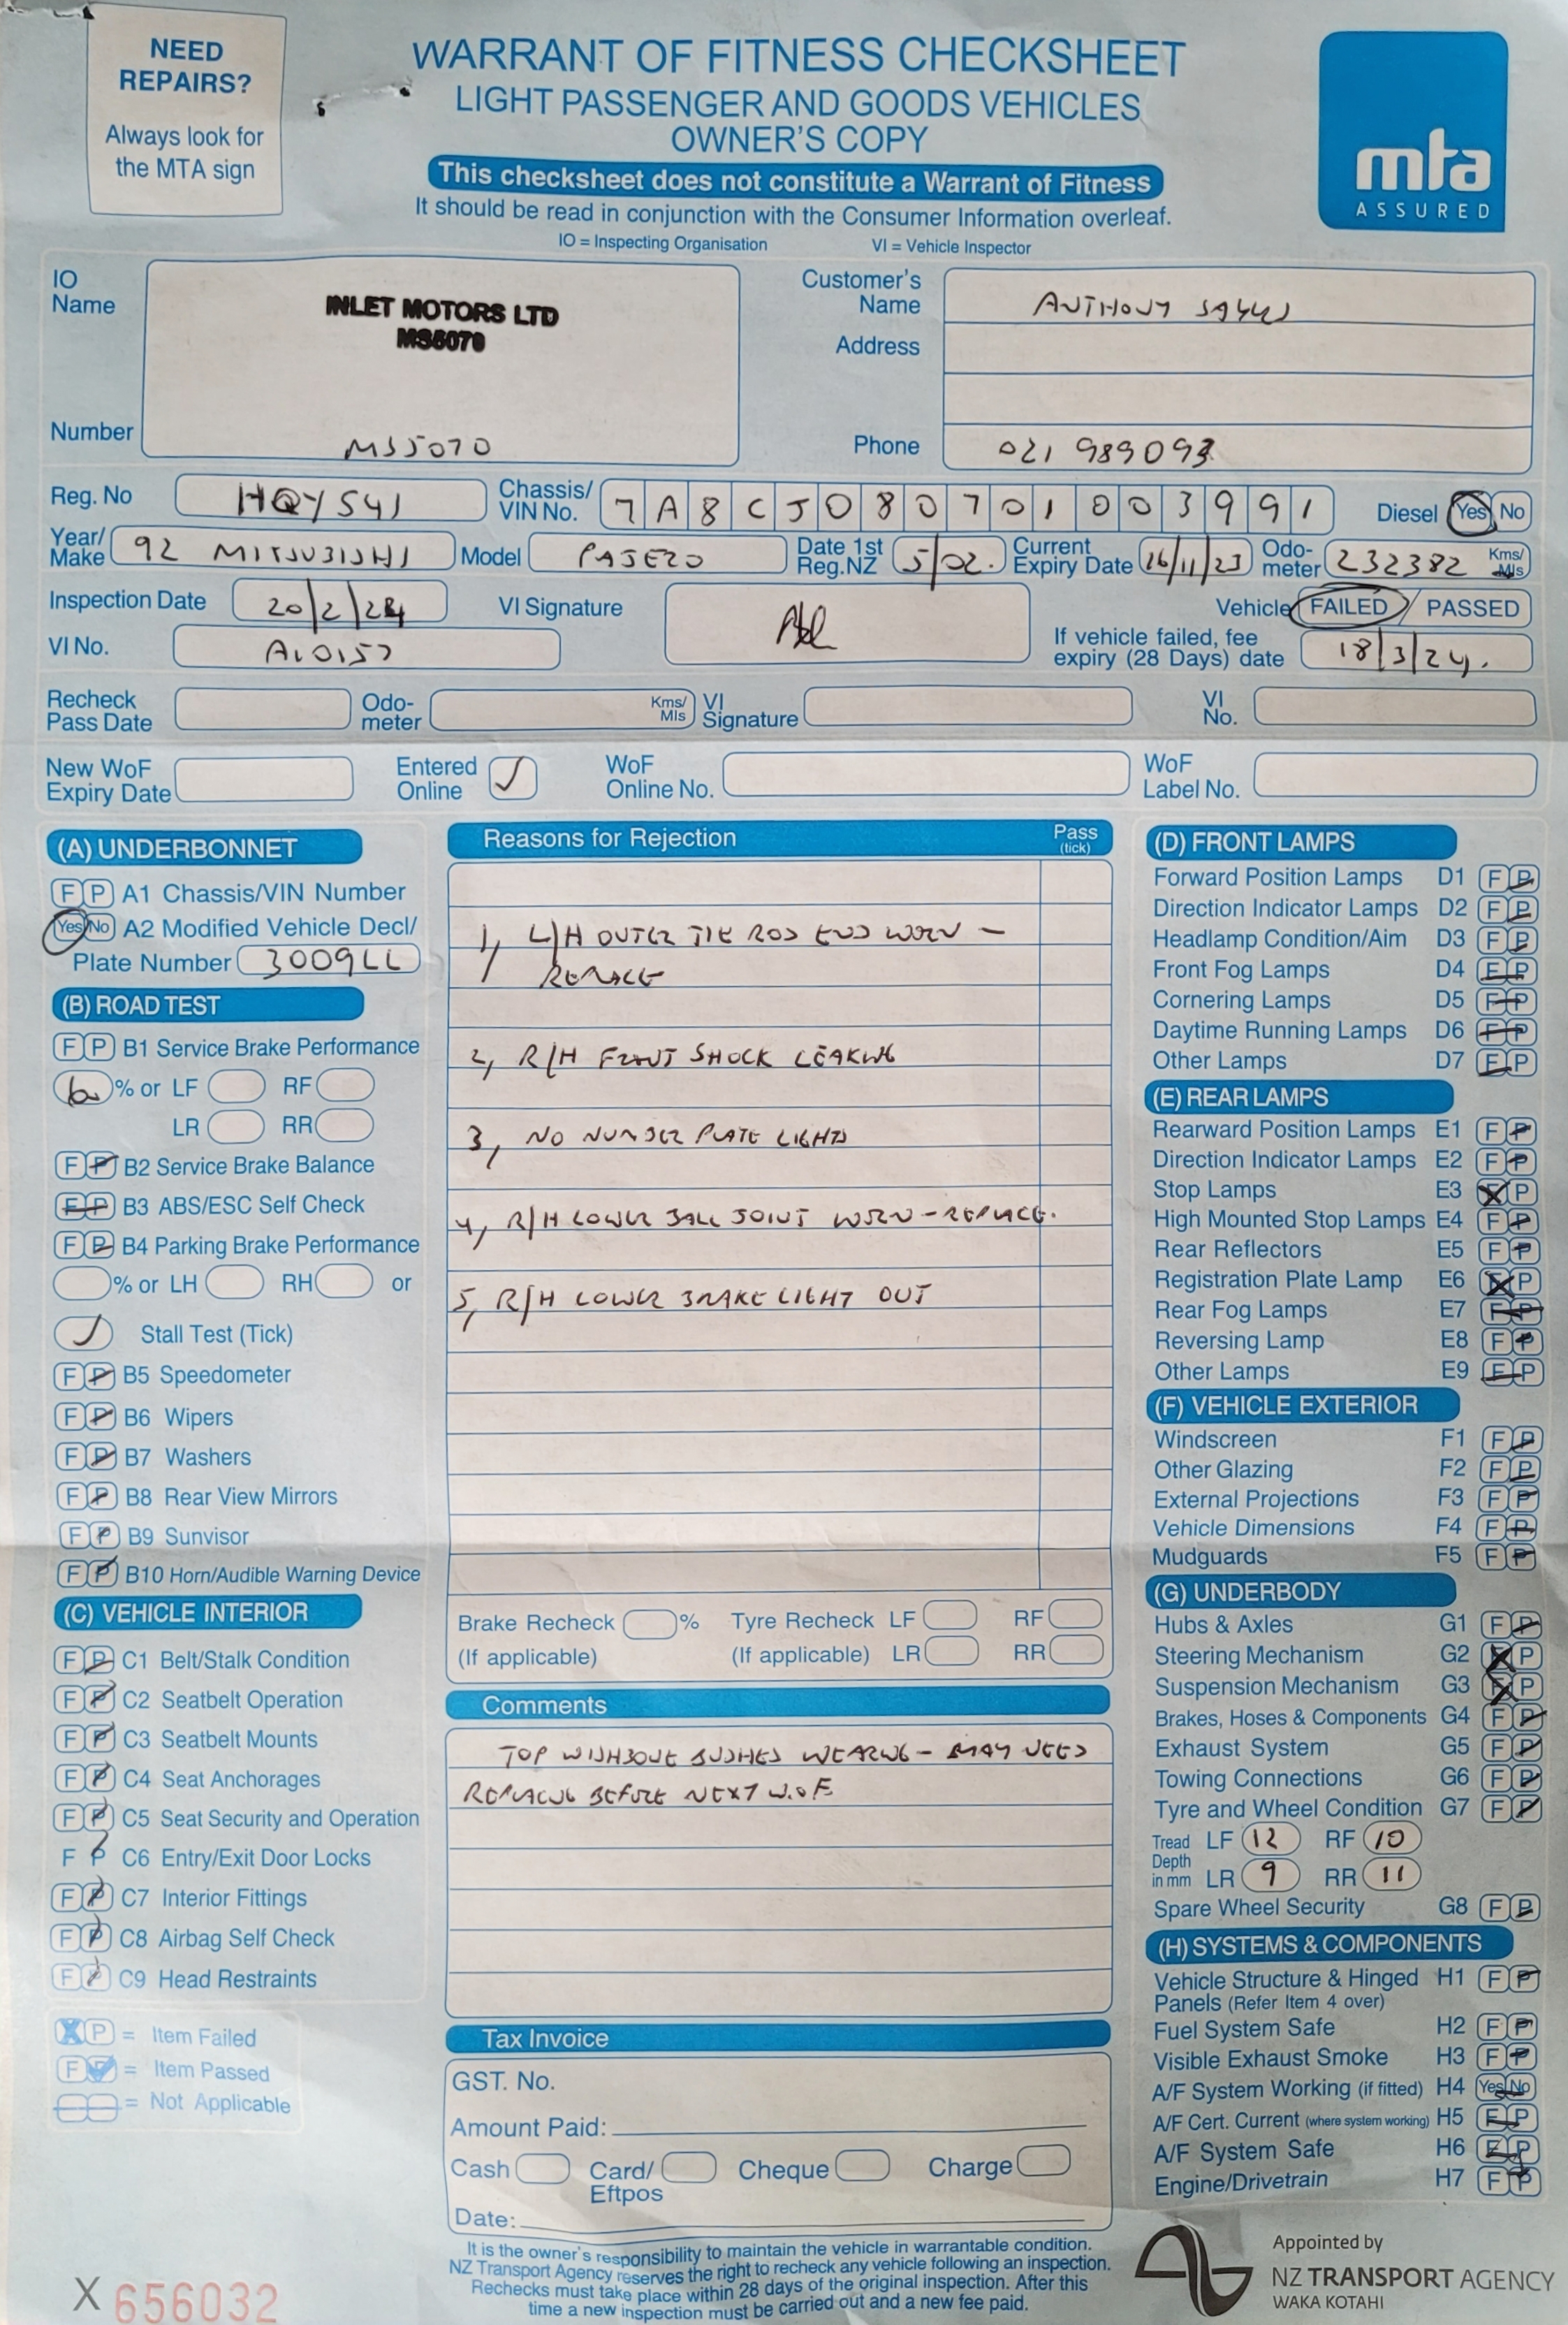 NEED
REPAIRS?
Always look for
the MTA sign
WARRANT OF FITNESS CHECKSHEET
LIGHT PASSENGER AND GOODS VEHICLES
OWNER'S COPY
This checksheet does not constitute a Warrant of Fitness
It should be read in conjunction with the Consumer Information overleaf.
IO = Inspecting Organisation VI = Vehicle Inspector
mta
ASSURED
IO
Name
INLET MOTORS LTD
MS5070
Number MS5070
Customer's
Name ANTHONY
Address
Phone 021 989093
Reg. No HQY541
Chassis/
VIN No. 7A8CJ080701003991
Diesel Yes No
Year/
Make 92 MITSUBISHI
Model PAJERO
Date 1st
Reg.NZ 5/02.
Current
Expiry Date 16/11/23
Odo-
meter 232382 Kms/
Mls
Inspection Date 20/2/24
VI Signature
Vehicle FAILED / PASSED
VI No.
If vehicle failed, fee
expiry (28 Days) date 18/3/24.
Recheck
Pass Date
Odo-
meter
Kms/
Mls
VI
Signature
VI
No.
New WoF
Expiry Date
Entered
Online
WoF
Online No.
WoF
Label No.
(A) UNDERBONNET
F P A1 Chassis/VIN Number
Yes No A2 Modified Vehicle Decl/
Plate Number 3009LL
(B) ROAD TEST
F P B1 Service Brake Performance
% or LF RF
LR RR
F P B2 Service Brake Balance
F P B3 ABS/ESC Self Check
F P B4 Parking Brake Performance
% or LH RH or
Stall Test (Tick)
F P B5 Speedometer
F P B6 Wipers
F P B7 Washers
F P B8 Rear View Mirrors
F P B9 Sunvisor
F P B10 Horn/Audible Warning Device
(C) VEHICLE INTERIOR
F P C1 Belt/Stalk Condition
F P C2 Seatbelt Operation
F P C3 Seatbelt Mounts
F P C4 Seat Anchorages
F P C5 Seat Security and Operation
F P C6 Entry/Exit Door Locks
F P C7 Interior Fittings
F P C8 Airbag Self Check
F P C9 Head Restraints
X P = Item Failed
F P = Item Passed
= Not Applicable
X 656032
Reasons for Rejection Pass
(tick)
1, L/H OUTER TIE ROD END WORN -
REPLACE
2, R/H FRONT SHOCK LEAKING
3, NO NUMBER PLATE LIGHTS
4, R/H LOWER BALL JOINT WORN - REPLACE.
5, R/H LOWER BRAKE LIGHT OUT
Brake Recheck %
(If applicable)
Tyre Recheck LF RF
(If applicable) LR RR
Comments
TOP WISHBONE BUSHES WEARING - MAY NEED
REPLACING BEFORE NEXT W.O.F.
Tax Invoice
GST. No.
Amount Paid:
Cash Card/
Eftpos
Cheque Charge
Date:
It is the owner's responsibility to maintain the vehicle in warrantable condition.
NZ Transport Agency reserves the right to recheck any vehicle following an inspection.
Rechecks must take place within 28 days of the original inspection. After this
time a new inspection must be carried out and a new fee paid.
(D) FRONT LAMPS
Forward Position Lamps D1 F P
Direction Indicator Lamps D2 F P
Headlamp Condition/Aim D3 F P
Front Fog Lamps D4 F P
Cornering Lamps D5 F P
Daytime Running Lamps D6 F P
Other Lamps D7 F P
(E) REAR LAMPS
Rearward Position Lamps E1 F P
Direction Indicator Lamps E2 F P
Stop Lamps E3 F P
High Mounted Stop Lamps E4 F P
Rear Reflectors E5 F P
Registration Plate Lamp E6 F P
Rear Fog Lamps E7 F P
Reversing Lamp E8 F P
Other Lamps E9 F P
(F) VEHICLE EXTERIOR
Windscreen F1 F P
Other Glazing F2 F P
External Projections F3 F P
Vehicle Dimensions F4 F P
Mudguards F5 F P
(G) UNDERBODY
Hubs & Axles G1 F P
Steering Mechanism G2 F P
Suspension Mechanism G3 F P
Brakes, Hoses & Components G4 F P
Exhaust System G5 F P
Towing Connections G6 F P
Tyre and Wheel Condition G7 F P
Tread
Depth
in mm
LF 12 RF 10
LR 9 RR 11
Spare Wheel Security G8 F P
(H) SYSTEMS & COMPONENTS
Vehicle Structure & Hinged H1 F P
Panels (Refer Item 4 over)
Fuel System Safe H2 F P
Visible Exhaust Smoke H3 F P
A/F System Working (if fitted) H4 Yes No
A/F Cert. Current (where system working) H5 F P
A/F System Safe H6 F P
Engine/Drivetrain H7 F P
Appointed by
NZ TRANSPORT AGENCY
WAKA KOTAHI